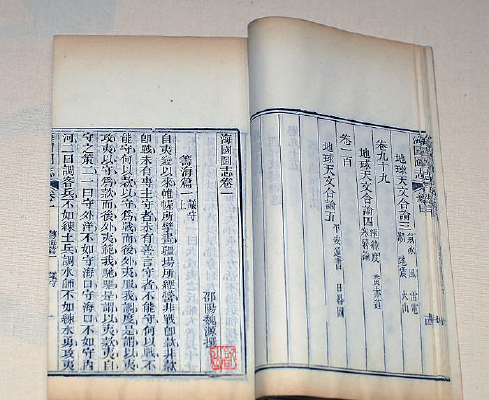 地球天文合論三
卷九十九
地球天文合論四
卷一百
地球天文合論五
海國圖志卷一
邵陽魏源撰
籌海篇一 議守上
自夷變以來帷幄所擘畫疆場所經營非戰即款非款
即戰未有專主守者未有善言守者不能守何以戰不
能守何以款以守為戰而後外夷服我調度是謂以夷
攻夷以守為款而後外夷範我馳驅是謂以夷款夷自
守之策二一曰守外洋不如守海口守海口不如守內
河二曰調客兵不如練土兵調水師不如練水勇攻夷